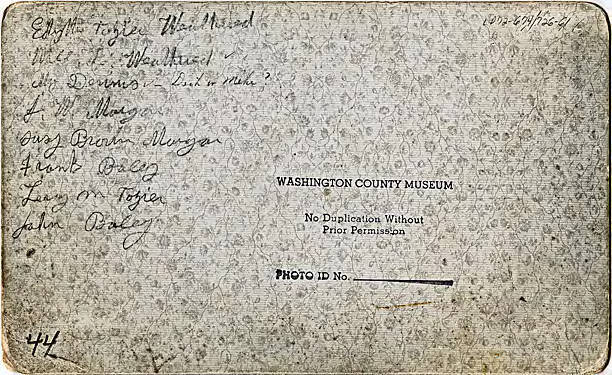 Edyth Tozier Weathered
Weathered
Dennis
J. W. Morgan
Susy Brown Morgan
Frank Baley
Tozier
John Baley
WASHINGTON COUNTY MUSEUM
No Duplication Without
Prior Permission
PHOTO ID No.
44